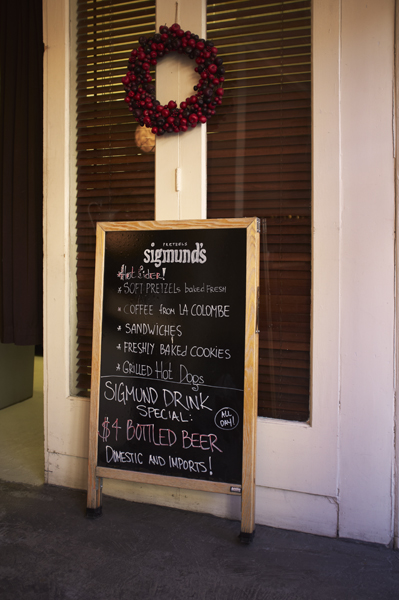 PRETZELS
sigmund's
*Hot Cider!
* SOFT PRETZELS baked FRESH
* COFFEE from LA COLOMBE
* SANDWICHES
* FRESHLY BAKED COOKIES
* GRILLED HOT DOGS
SIGMUND DRINK
SPECIAL:
ALL
DAY!
$4 BOTTLED BEER
DOMESTIC AND IMPORTS!